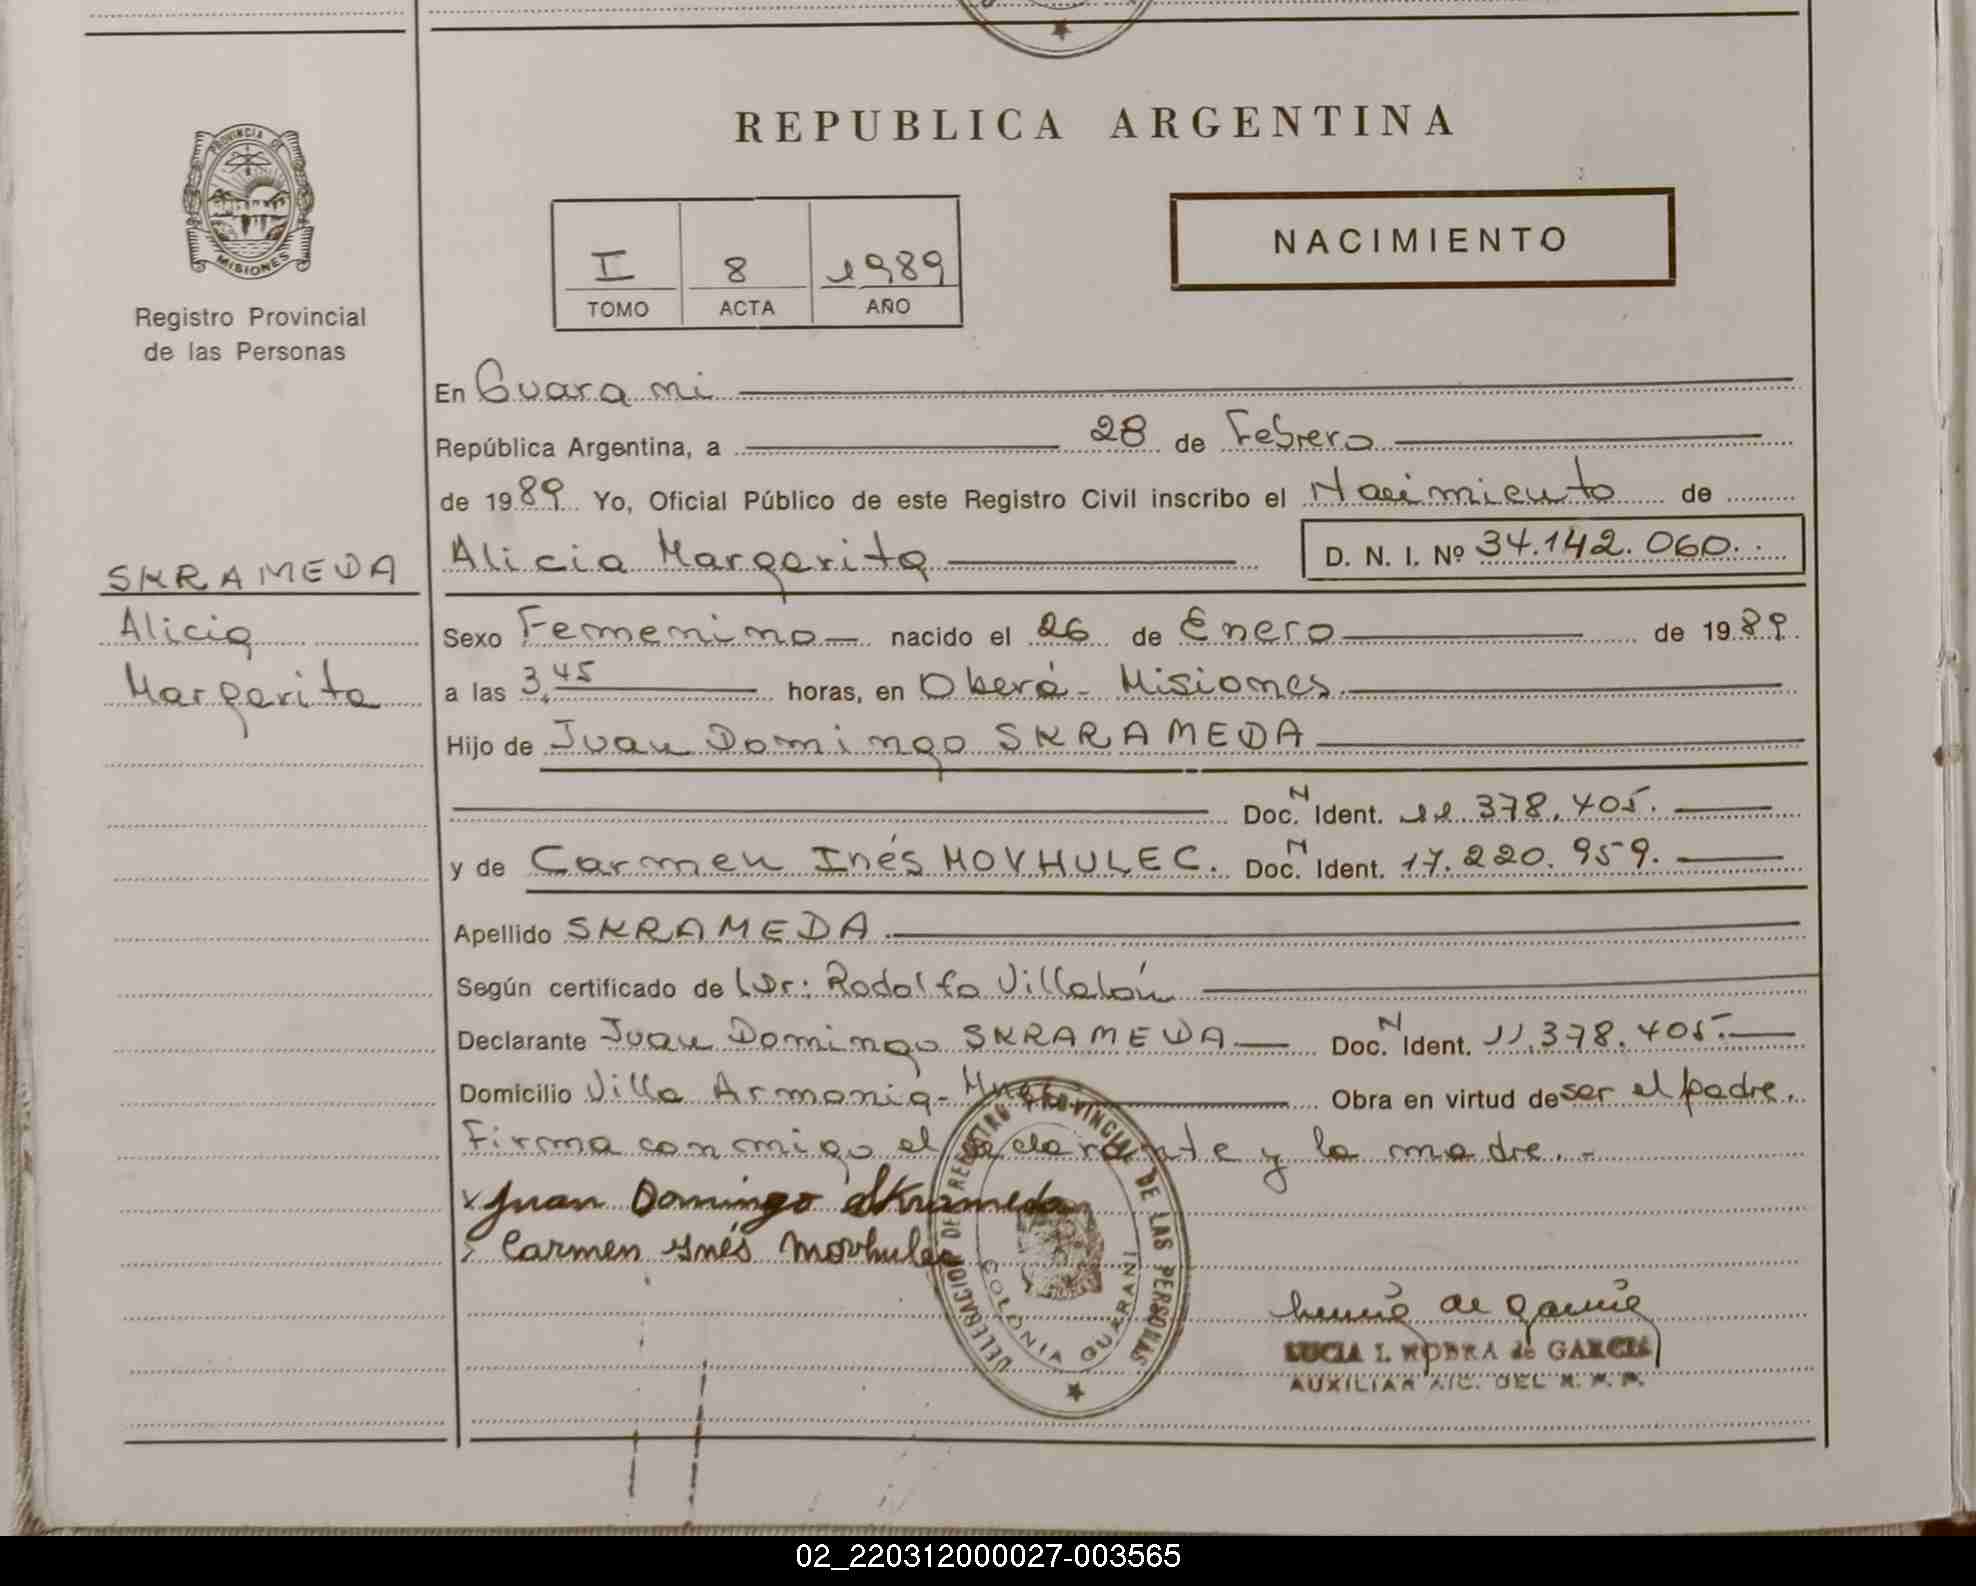 PROVINCIA DE
MISIONES
Registro Provincial
de las Personas
SKRAMEDA
Alicia
Margarita
REPUBLICA ARGENTINA
I 8 1989
TOMO ACTA AÑO
NACIMIENTO
En Guarani
República Argentina, a 28 de Febrero
de 1989 Yo, Oficial Público de este Registro Civil inscribo el Nacimiento de
Alicia Margarita D. N. I. Nº 34.142.060.
Sexo Femenino nacido el 26 de Enero de 1989
a las 3,45 horas, en Oberá - Misiones
Hijo de Juan Domingo SKRAMEDA
Doc. N Ident. 11.378.405.
y de Carmen Inés MOVHULEC. Doc. N Ident. 17.220.959.
Apellido SKRAMEDA
Según certificado de Dr: Rodolfo Villalón
Declarante Juan Domingo SKRAMEDA Doc. N Ident. 11.378.405.
Domicilio Villa Armonia - Obra en virtud de ser el padre.
Firma conmigo el declarante y la madre. -
x Juan Domingo Skrameda
x Carmen Inés Movhulec
DELEGACION DE REGISTRO PROVINCIAL DE LAS PERSONAS
COLONIA GUARANI
LUCIA I. de GARCIA
AUXILIAR DEL R. P. P.
02_220312000027-003565